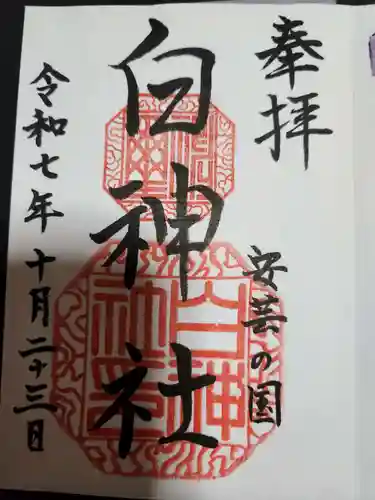 奉拝
安芸の国
白神社
令和七年十月二十三日